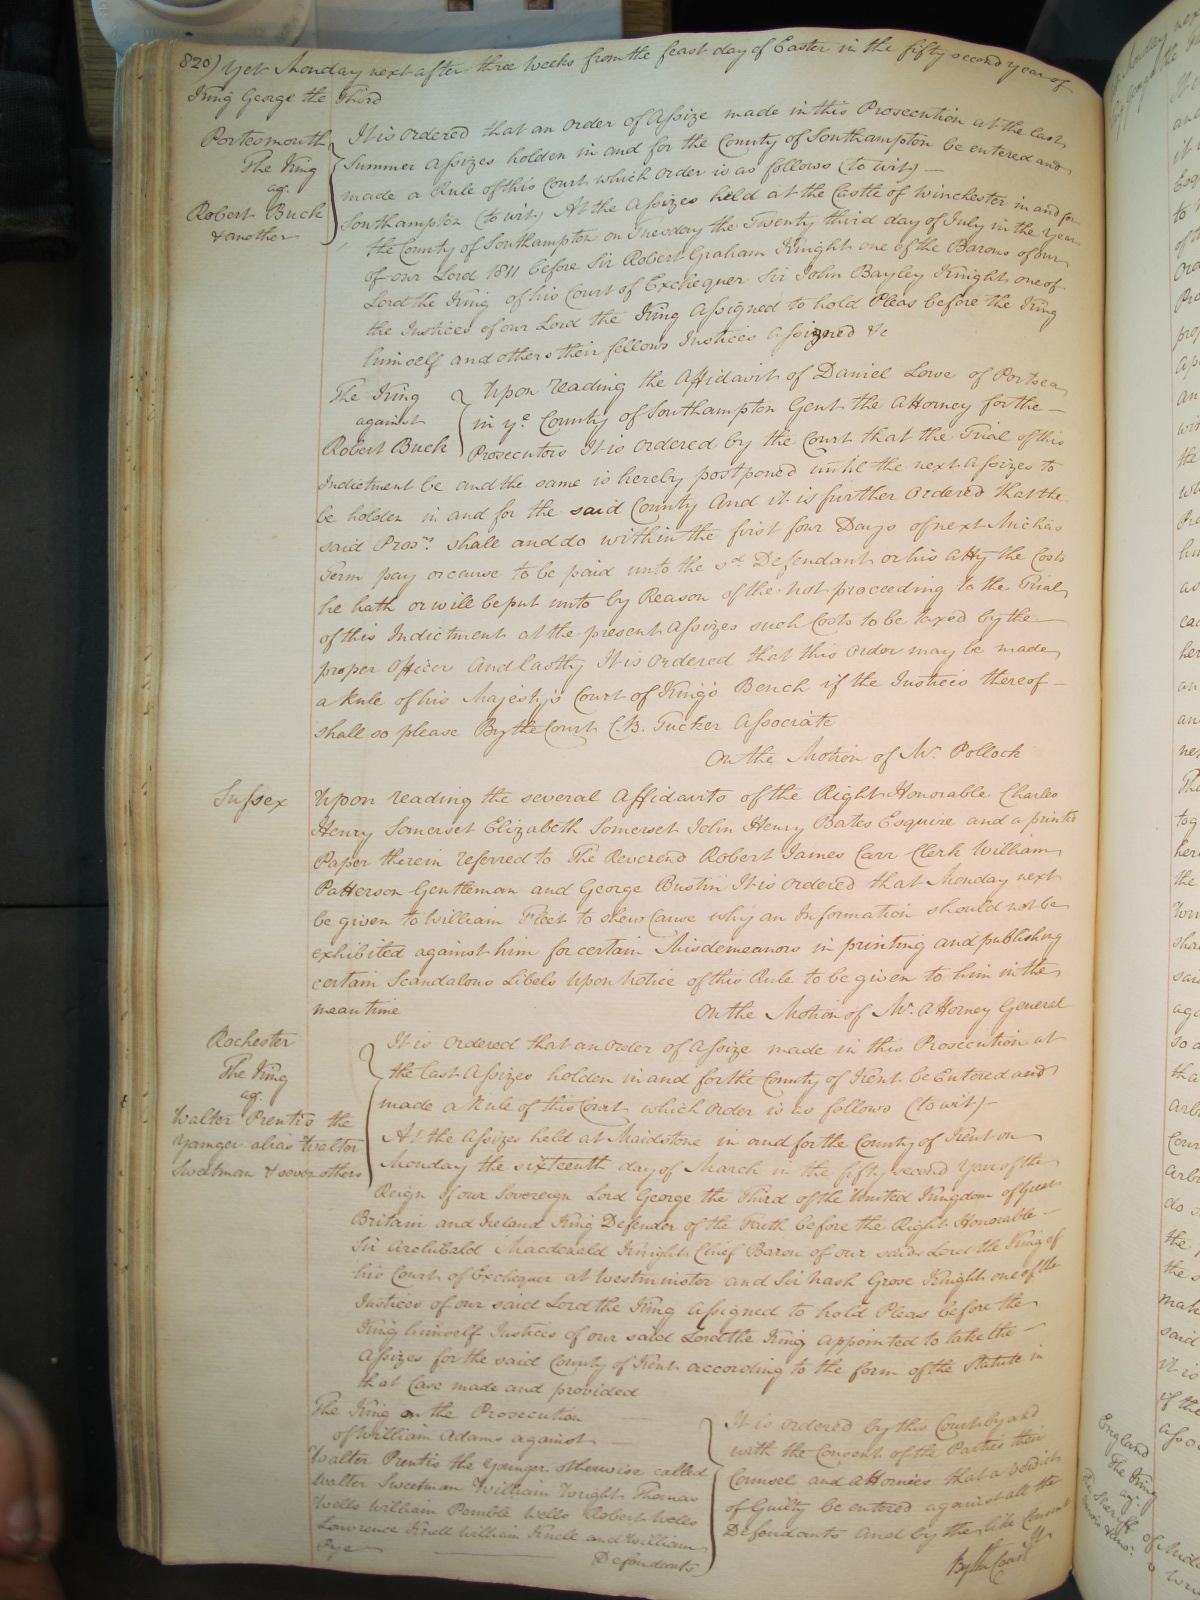 820) Yet Monday next after three Weeks from the feast day of Easter in the fifty second year of
King George the Third
Portesmouth
The King
ag.
Robert Buck
& another
It is ordered that an order of Assize made in this Prosecution at the last
Summer Assizes holden in and for the County of Southampton be entered and
made a Rule of this Court which Order is as follows (to wit) —
Southampton (to wit) At the Assizes held at the Castle of Winchester in and for
the County of Southampton on Tuesday the Twenty third day of July in the Year
of our Lord 1811 before Sir Robert Graham Knight one of the Barons of our
Lord the King of his Court of Exchequer Sir John Bayley Knight one of
the Justices of our Lord the King Assigned to hold Pleas before the King
himself and others their fellows Justices Assigned &c
The King
against
Robert Buck
Upon reading the Affidavit of Daniel Lowe of Portsea
in ye. County of Southampton Gent the Attorney for the —
Prosecutors It is ordered by the Court that the Trial of this
Indictment be and the same is hereby postponed until the next Assizes to
be holden in and for the said County And it is further Ordered that the
said Prosrs. shall and do within the first four Days of next Michas
Term pay or cause to be paid unto the sd. Defendant or his Atty the Costs
he hath or will be put unto by Reason of the not proceeding to the Trial
of this Indictment at the present Assizes such Costs to be taxed by the —
proper Officer And lastly It is Ordered that this Order may be made
a Rule of his Majesty's Court of King's Bench if the Justices thereof —
shall so please By the Court C. B. Tucker Associate
On the Motion of Mr. Pollock
Sussex
Upon reading the several Affidavits of the Right Honorable Charles
Henry Somerset Elizabeth Somerset John Henry Bates Esquire and a printed
Paper therein referred to The Reverend Robert James Carr Clerk William
Patterson Gentleman and George Bustin It is ordered that Monday next
be given to William Fleet to shew Cause why an Information should not be
exhibited against him for certain Misdemeanors in printing and publishing
certain Scandalous Libels Upon Notice of this Rule to be given to him in the
mean time
On the Motion of Mr. Attorney General
Rochester
The King
ag.
Walter Prentis the
Younger alias Walter
Sweetman & seven others
It is Ordered that an order of Assize made in this Prosecution at
the last Assizes holden in and for the County of Kent be Entered and
made a Rule of this Court which Order is as follows (to wit) —
At the Assizes held at Maidstone in and for the County of Kent on
Monday the sixteenth day of March in the fifty second Year of the
Reign of our Sovereign Lord George the Third of the United Kingdom of Great
Britain and Ireland King Defender of the Faith before the Right Honorable —
Sir Archibald Macdonald Knight Chief Baron of our said Lord the King of
his Court of Exchequer at Westminster and Sir Nash Grose Knight one of the
Justices of our said Lord the King Assigned to hold Pleas before the
King himself Justices of our said Lord the King Appointed to take the —
Assizes for the said County of Kent according to the form of the Statute in
that Case made and provided
The King on the Prosecution
of William Adams against
Walter Prentis the Younger otherwise called
Walter Sweetman William Wright Thomas
Wells William Pemble Wells Robert Wells
Lawrence Knell William Knell and William
Pye — Defendants
It is ordered by this Court by and
with the Consent of the Parties their
Counsel and Attornies that a Verdict
of Guilty be entered against all the
Defendants And by the like Consent
By the Court
England
The King
ag.